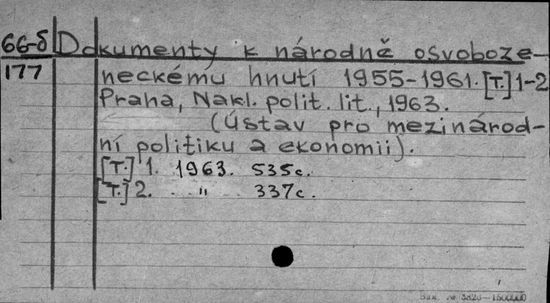 66-б Dokumenty k národně osvoboze-
177 neckému hnutí 1955-1961. [T.] 1-2
Praha, Nakl. polit. lit., 1963.
(Ústav pro mezinárod-
ní politiku a ekonomii).
[T.] 1. 1963. 535c.
[T.] 2. . " . 337c.
Зак. № 3820—1500000